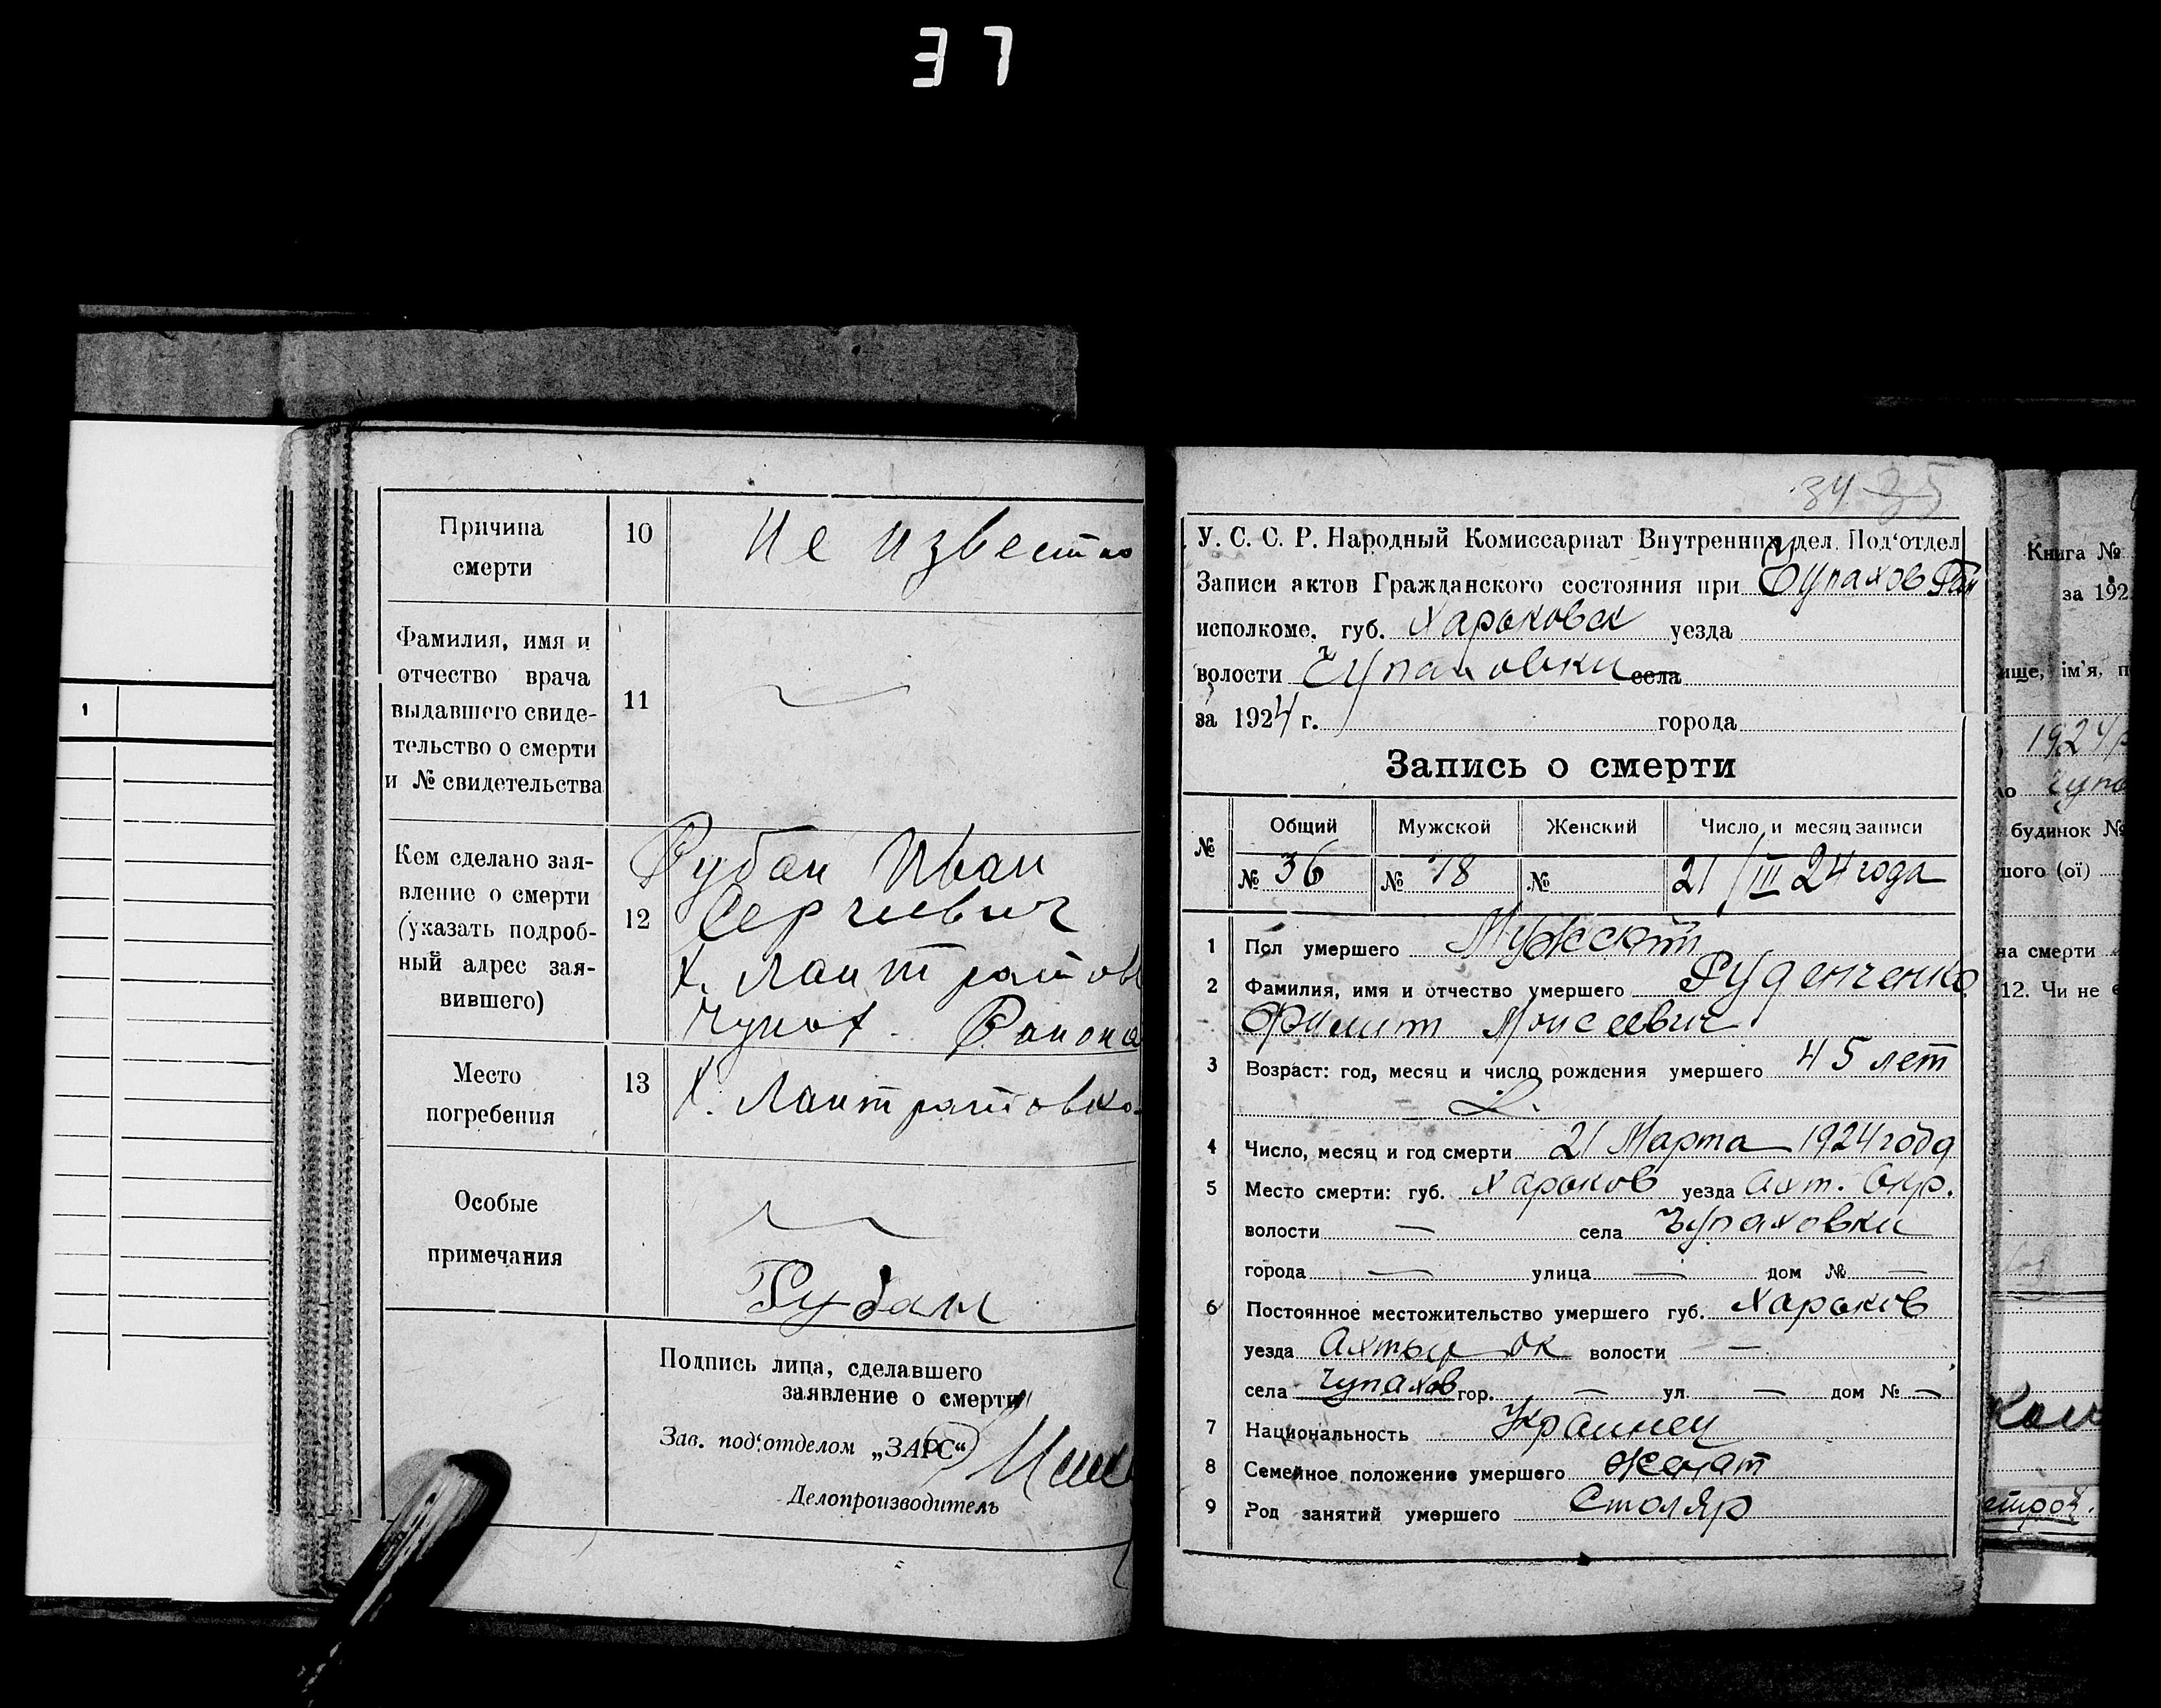 37
Причина
смерти
10
Не известно
Фамилия, имя и
отчество врача
выдавшего свиде-
тельство о смерти
и № свидетельства
11
Кем сделано зая-
вление о смерти
(указать подроб-
ный адрес зая-
вившего)
12
Рубан Иван
Сергиевич
х. Лантратов
Чупах. Района
Место
погребения
13
х. Лантратовка
Особые
примечания
Рубан
Подпись лица, сделавшего
заявление о смерти
Зав. под‘отделом „ЗАГС“
Делопроизводитель
1
34 35
У. С. С. Р. Народный Комиссариат Внутренних дел. Под‘отдел
Записи актов Гражданского состояния при Чупахов Рай
исполкоме. губ. Харьковск уезда
волости Чупаховки села
за 1924 г. города
Запись о смерти
№ Общий Мужской Женский Число и месяц записи
№ 36 № 18 № 21/III 24 года
1 Пол умершего Мужской
2 Фамилия, имя и отчество умершего Руденченко
Филипп Моисеевич
3 Возраст: год, месяц и число рождения умершего 45 лет
4 Число, месяц и год смерти 21 Марта 1924 года
5 Место смерти: губ. Харьков уезда Ахт. Окр.
волости — села Чупаховки
города — улица — дом № —
6 Постоянное местожительство умершего губ. Харьков
уезда Ахтыр ок волости —
села Чупахов гор. — ул — дом № —
7 Национальность Украинец
8 Семейное положение умершего женат
9 Род занятий умершего Столяр
Книга №
за 192
ище, ім’я, п
1924
Чупа
будинок №
ного (ої)
на смерти
12. Чи не є